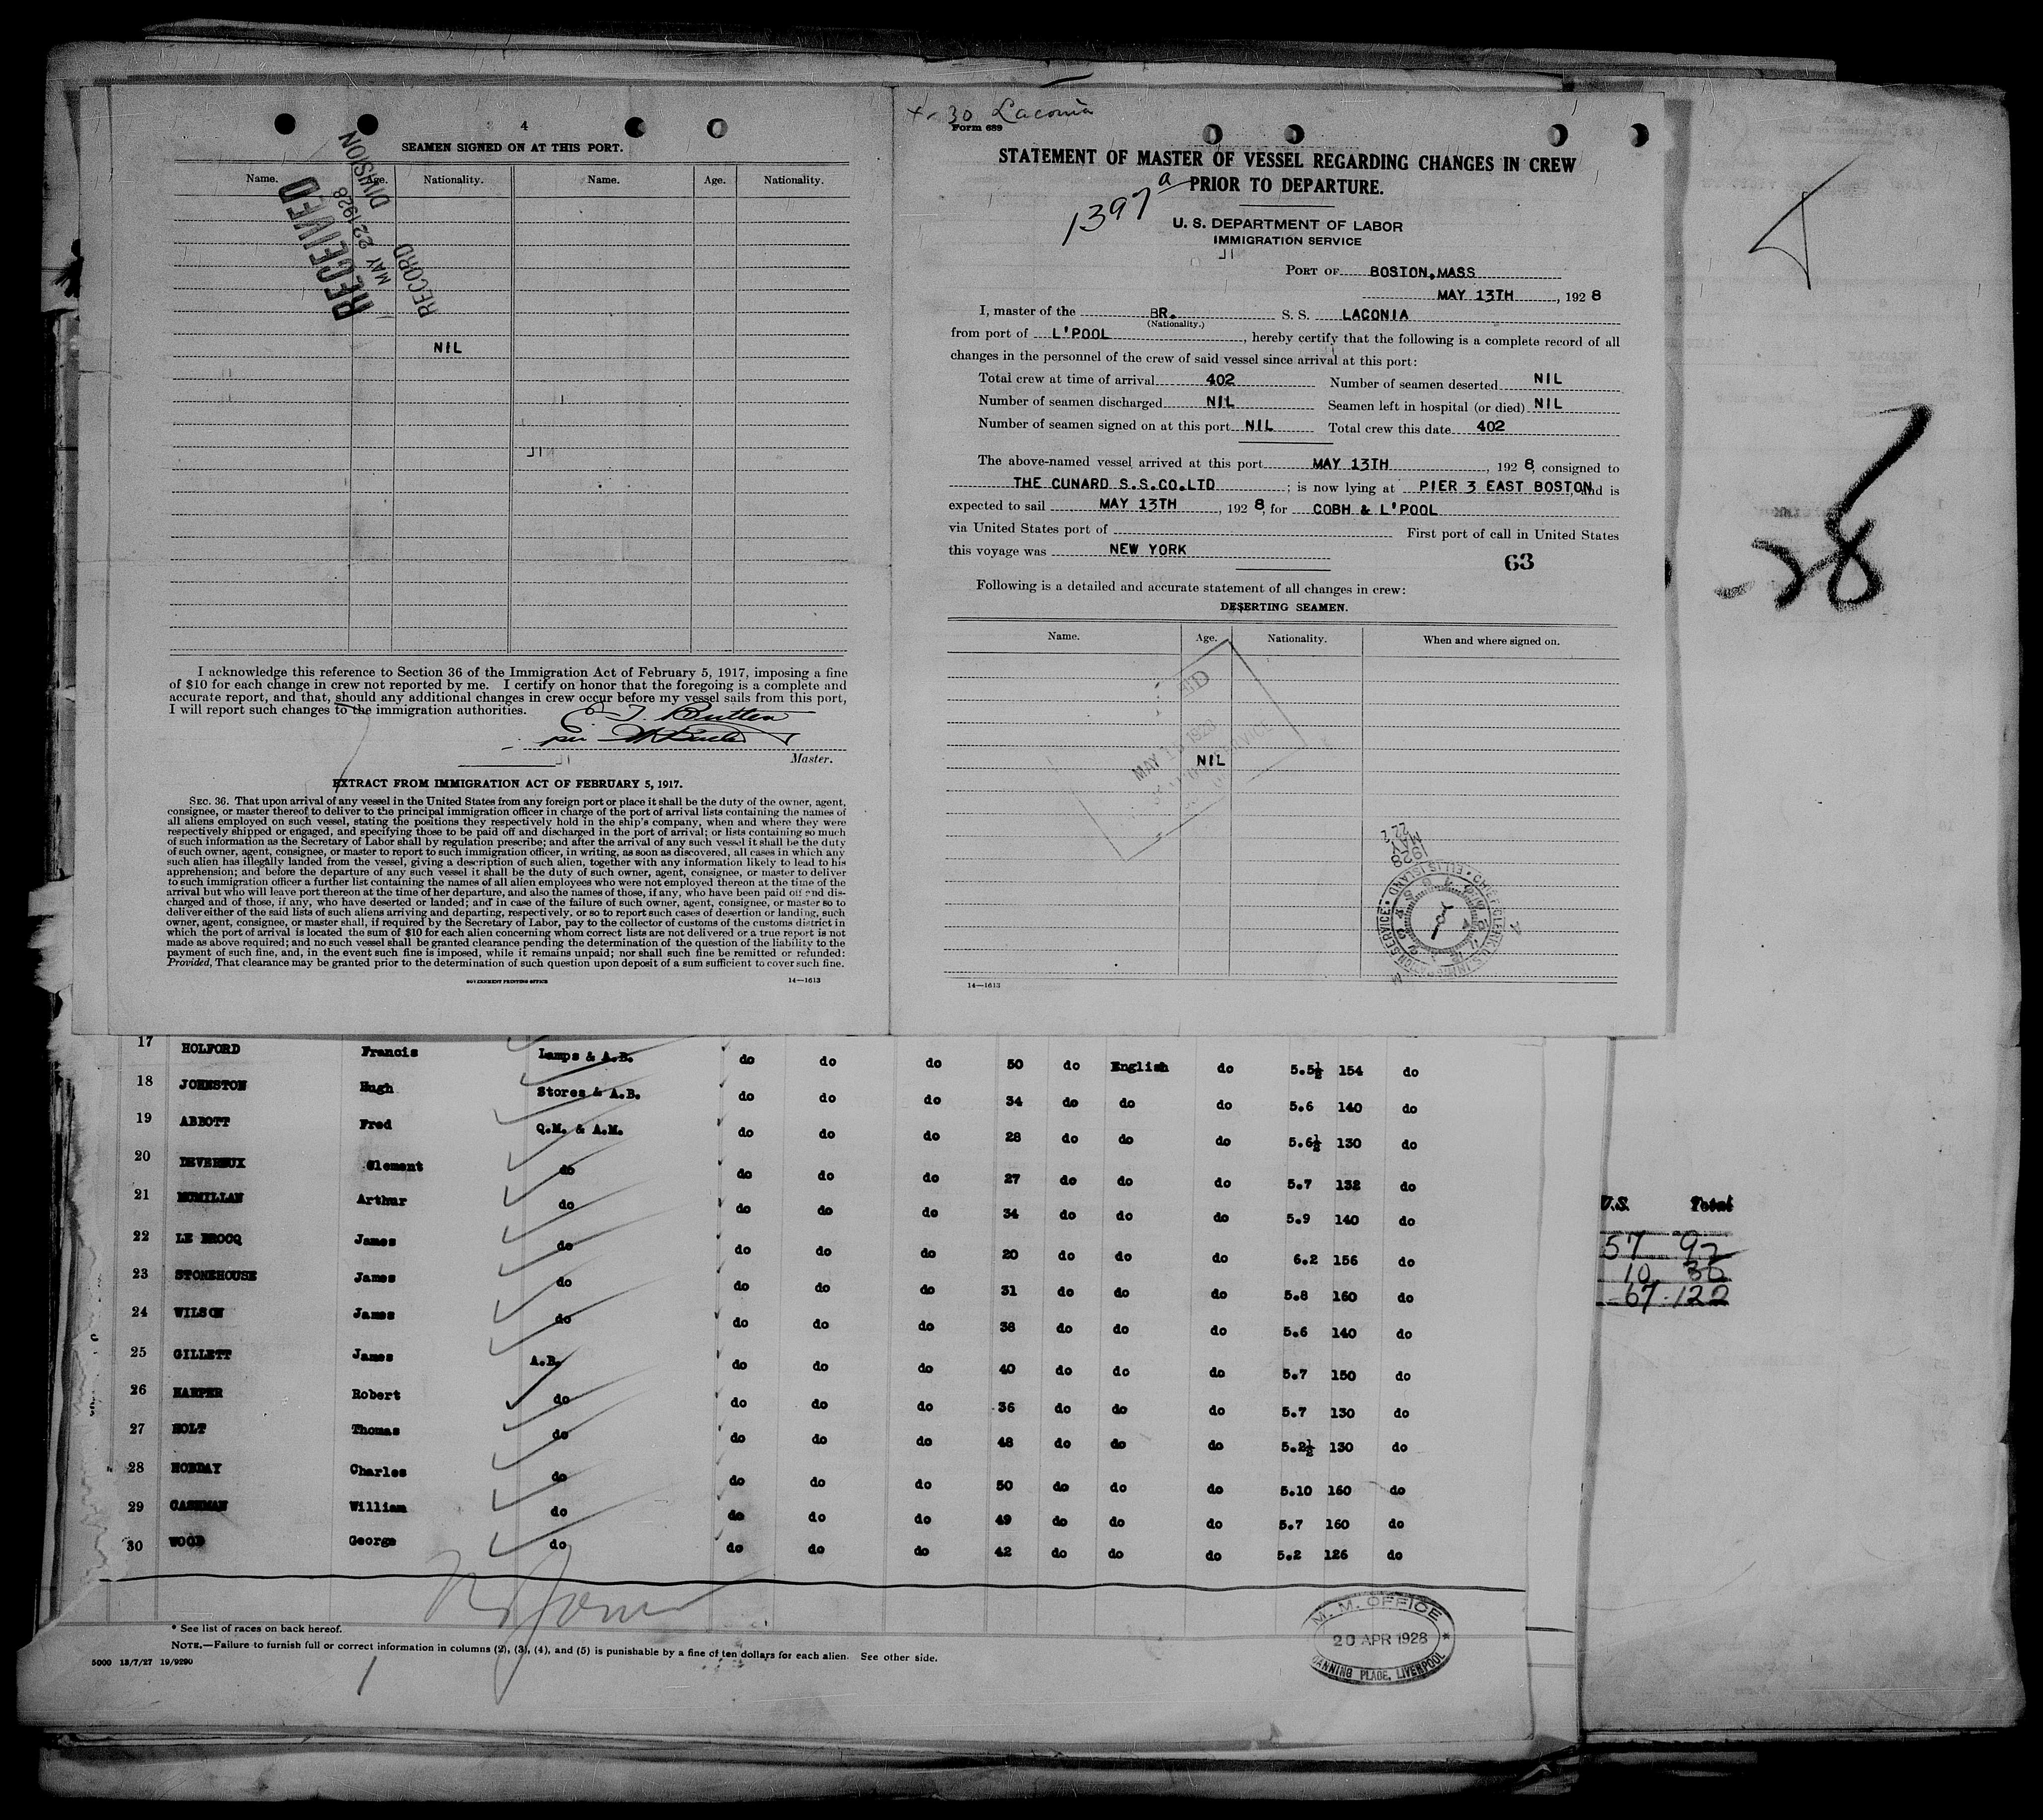 4
SEAMEN SIGNED ON AT THIS PORT.
Name. Age. Nationality. Name. Age. Nationality.
RECEIVED
MAY 22 1928
RECORD DIVISION
NIL
I acknowledge this reference to Section 36 of the Immigration Act of February 5, 1917, imposing a fine
of $10 for each change in crew not reported by me. I certify on honor that the foregoing is a complete and
accurate report, and that, should any additional changes in crew occur before my vessel sails from this port,
I will report such changes to the immigration authorities.
Master.
EXTRACT FROM IMMIGRATION ACT OF FEBRUARY 5, 1917.
SEC. 36. That upon arrival of any vessel in the United States from any foreign port or place it shall be the duty of the owner, agent,
consignee, or master thereof to deliver to the principal immigration officer in charge of the port of arrival lists containing the names of
all aliens employed on such vessel, stating the positions they respectively hold in the ship's company, when and where they were
respectively shipped or engaged, and specifying those to be paid off and discharged in the port of arrival; or lists containing so much
of such information as the Secretary of Labor shall by regulation prescribe; and after the arrival of any such vessel it shall be the duty
of such owner, agent, consignee, or master to report to such immigration officer, in writing, as soon as discovered, all cases in which any
such alien has illegally landed from the vessel, giving a description of such alien, together with any information likely to lead to his
apprehension; and before the departure of any such vessel it shall be the duty of such owner, agent, consignee, or master to deliver
to such immigration officer a further list containing the names of all alien employees who were not employed thereon at the time of the
arrival but who will leave port thereon at the time of her departure, and also the names of those, if any, who have been paid off and dis-
charged and of those, if any, who have deserted or landed; and in case of the failure of such owner, agent, consignee, or master so to
deliver either of the said lists of such aliens arriving and departing, respectively, or so to report such cases of desertion or landing, such
owner, agent, consignee, or master shall, if required by the Secretary of Labor, pay to the collector of customs of the customs district in
which the port of arrival is located the sum of $10 for each alien concerning whom correct lists are not delivered or a true report is not
made as above required; and no such vessel shall be granted clearance pending the determination of the question of the liability to the
payment of such fine, and, in the event such fine is imposed, while it remains unpaid; nor shall such fine be remitted or refunded:
Provided, That clearance may be granted prior to the determination of such question upon deposit of a sum sufficient to cover such fine.
GOVERNMENT PRINTING OFFICE 14—1613
30 Laconia
Form 689
STATEMENT OF MASTER OF VESSEL REGARDING CHANGES IN CREW
PRIOR TO DEPARTURE.
1397 a
U. S. DEPARTMENT OF LABOR
IMMIGRATION SERVICE
PORT OF BOSTON, MASS
MAY 13TH, 1928
I, master of the BR. S. S. LACONIA
(Nationality.)
from port of L'POOL, hereby certify that the following is a complete record of all
changes in the personnel of the crew of said vessel since arrival at this port:
Total crew at time of arrival 402 Number of seamen deserted NIL
Number of seamen discharged NIL Seamen left in hospital (or died) NIL
Number of seamen signed on at this port NIL Total crew this date 402
The above-named vessel arrived at this port MAY 13TH, 1928, consigned to
THE CUNARD S.S.CO.LTD; is now lying at PIER 3 EAST BOSTON, and is
expected to sail MAY 13TH, 1928, for COBH & L'POOL
via United States port of First port of call in United States
this voyage was NEW YORK
63
Following is a detailed and accurate statement of all changes in crew:
DESERTING SEAMEN.
Name. Age. Nationality. When and where signed on.
NIL
14—1613
17 HOLFORD Francis Lamps & A.B. do do do 50 do English do 5.5½ 154 do
18 JOHNSTON Hugh Stores & A.B. do do do 34 do do do 5.6 140 do
19 ABBOTT Fred Q.M. & A.M. do do do 28 do do do 5.6½ 130 do
20 DEVEREUX Clement do do do do 27 do do do 5.7 132 do
21 McMILLAN Arthur do do do do 34 do do do 5.9 140 do
22 LE BROCQ James do do do do 20 do do do 6.2 156 do
23 STONEHOUSE James do do do do 31 do do do 5.8 160 do
24 WILSON James do do do do 38 do do do 5.6 140 do
25 GILLETT James A.B. do do do 40 do do do 5.7 150 do
26 HARPER Robert do do do do 36 do do do 5.7 130 do
27 HOLT Thomas do do do do 48 do do do 5.2½ 130 do
28 HOBDAY Charles do do do do 50 do do do 5.10 160 do
29 CASHMAN William do do do do 49 do do do 5.7 160 do
30 WOOD George do do do do 42 do do do 5.2 126 do
* See list of races on back hereof.
NOTE.—Failure to furnish full or correct information in columns (2), (3), (4), and (5) is punishable by a fine of ten dollars for each alien. See other side.
5000 13/7/27 19/9290
M. M. OFFICE
20 APR 1928
CANNING PLACE, LIVERPOOL
U.S. Total
57 92
10 30
67 122